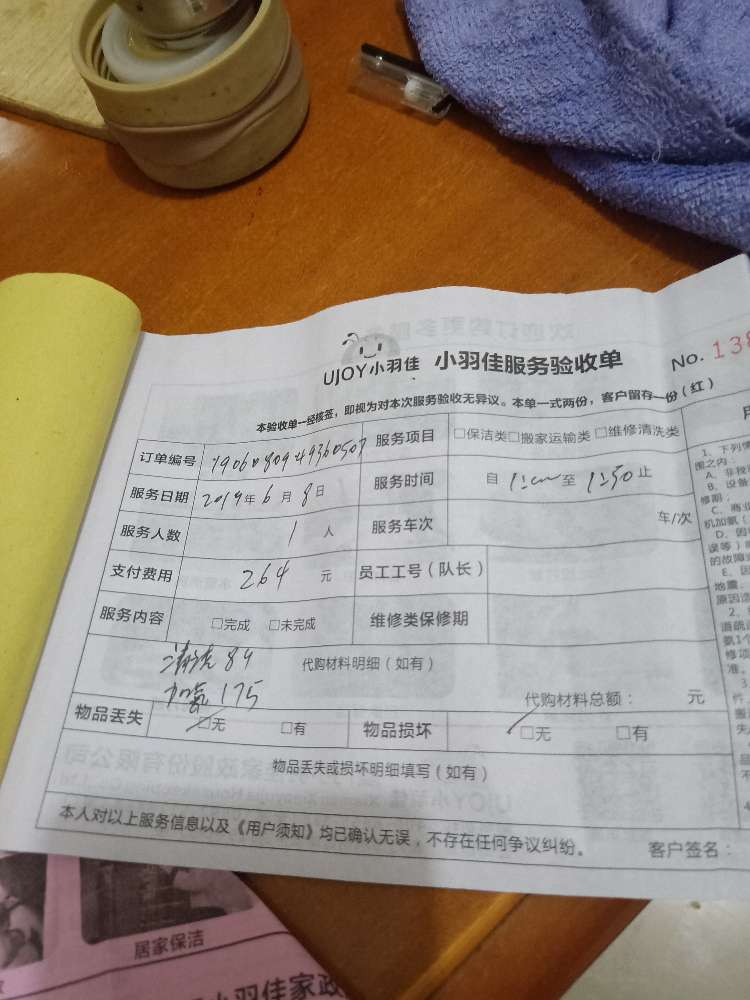 UJOY小羽佳 小羽佳服务验收单 No. 138
本验收单一经核签，即视为对本次服务验收无异议。本单一式两份，客户留存一份（红）
订单编号 服务项目 □保洁类□搬家运输类 □维修清洗类
服务日期 2019年 6月 8日 服务时间 自 至 1:50 止
服务人数 1 人 服务车次 车/次
支付费用 264 元 员工工号（队长）
服务内容 □完成 □未完成 维修类保修期
清洗 89 代购材料明细（如有）
加氟 175 代购材料总额： 元
物品丢失 □无 □有 物品损坏 □无 □有
物品丢失或损坏明细填写（如有）
本人对以上服务信息以及《用户须知》均已确认无误，不存在任何争议纠纷。 客户签名：
1、下列情
围之内：
B、设备
修期；
C、商业
机加氨（
D、因
误等）
的故障
E、因
地震
原因造
2、
道疏
氨1个
修项
准。
3
件
居家保洁
小羽佳家政